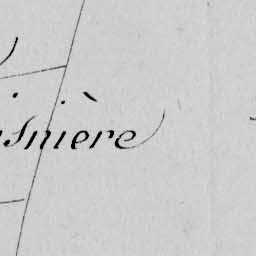 isnière